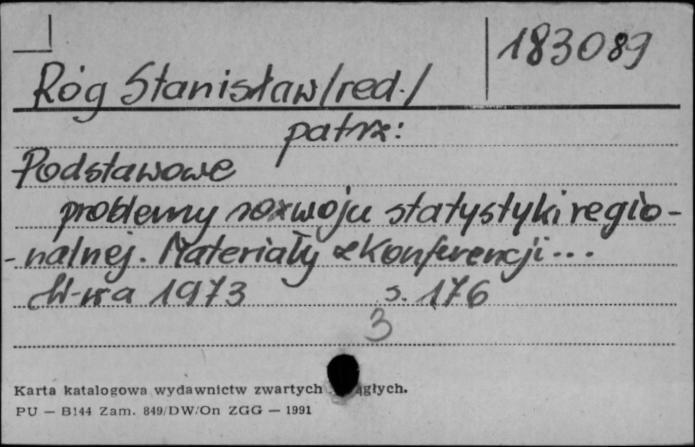 183089
Róg Stanisław/red./
patrz:
Podstawowe
problemy rozwoju statystyki regio-
-nalnej. Materiały z Konferencji...
W-wa 1973 s. 176
3
Karta katalogowa wydawnictw zwartych głych.
PU — B144 Zam. 849/DW/On ZGG — 1991